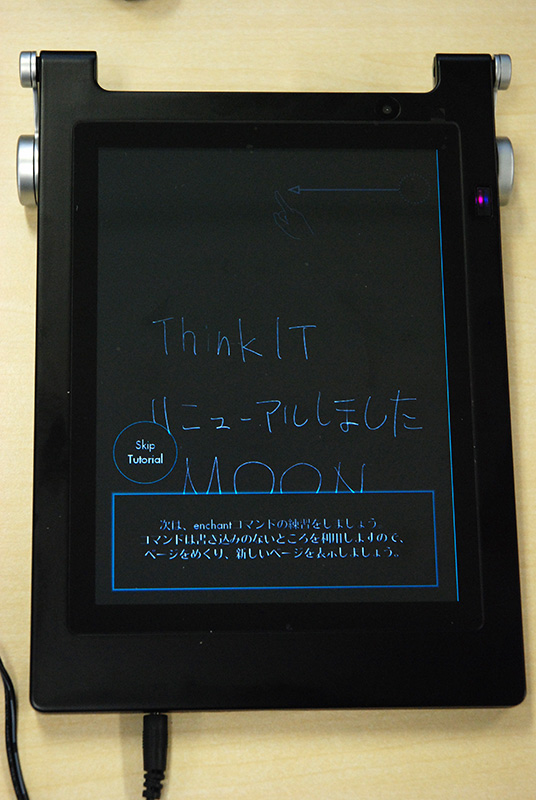 Think IT
リニューアルしました
Skip
Tutorial
MOON
次は、enchantコマンドの練習をしましょう。
コマンドは書き込みのないところを利用しますので、
ページをめくり、新しいページを表示しましょう。